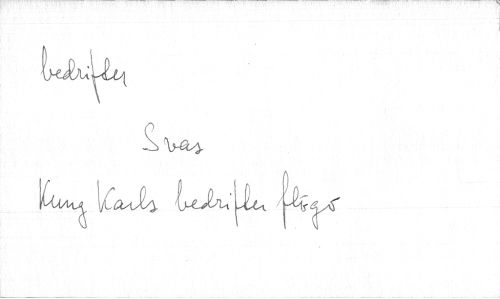 bedrifter
Svas
Kung Karls bedrifter flögo